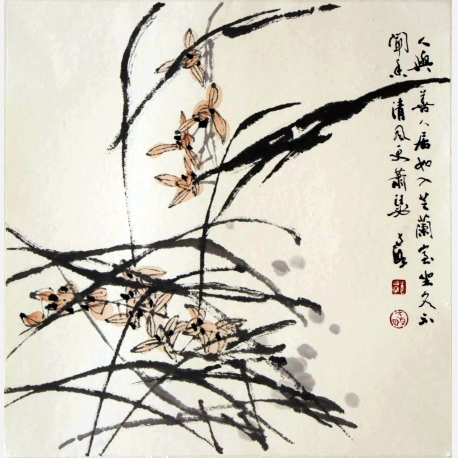 人与善人居如入芝蘭室坐久不
聞香清風更蕭瑟